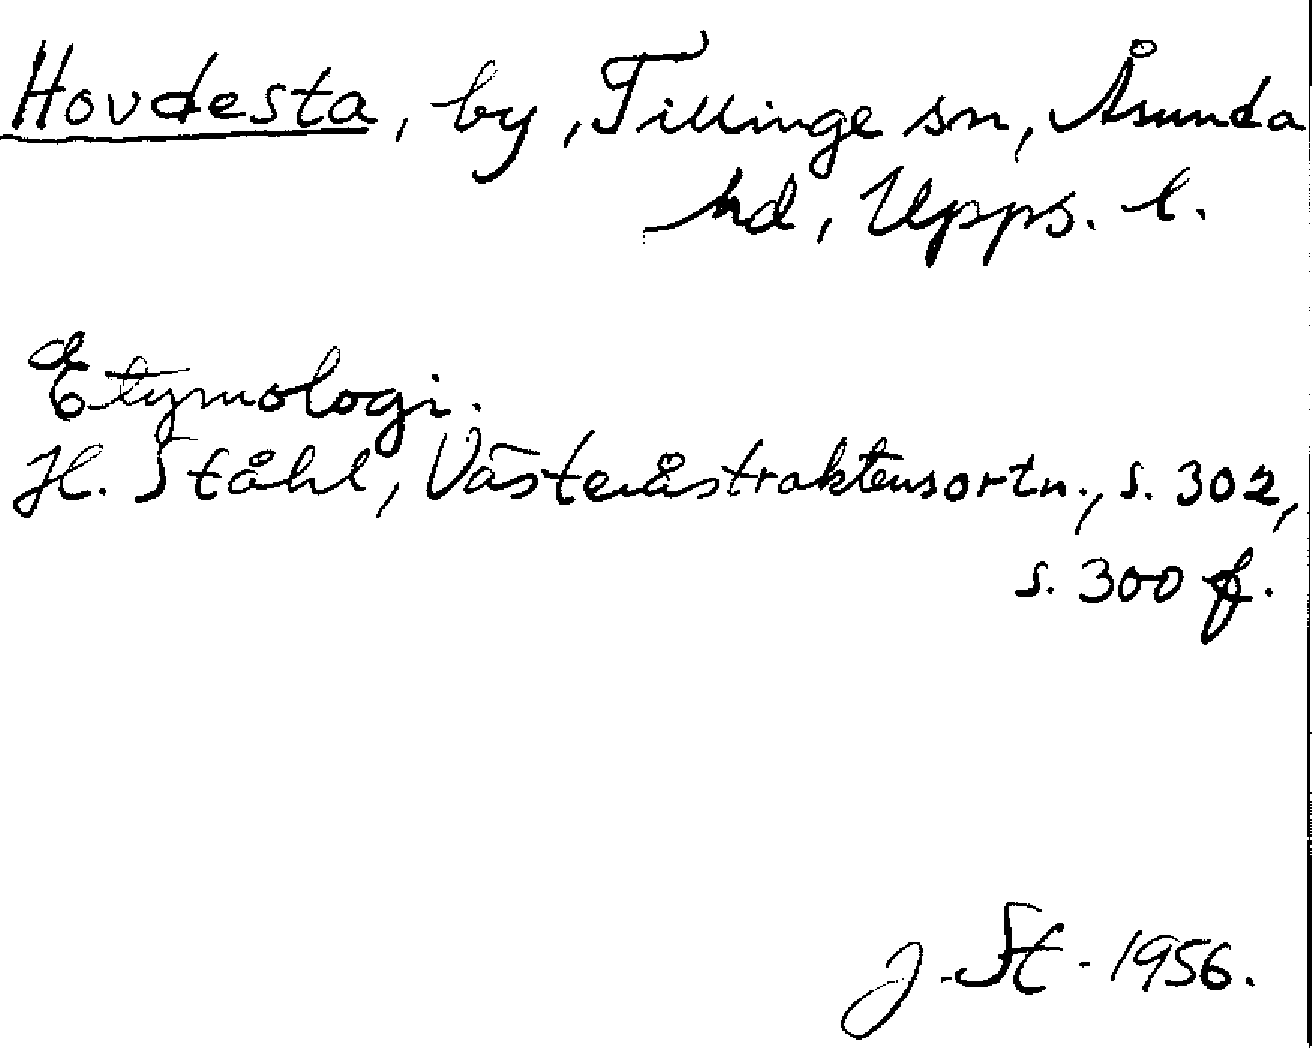 Hovdesta, by, Tillinge sn, Åsunda
hd, Upps. l.
Etymologi.
H. Ståhl, Västeråstraktens ortn., s. 302,
s. 300 f.
J. St. 1956.